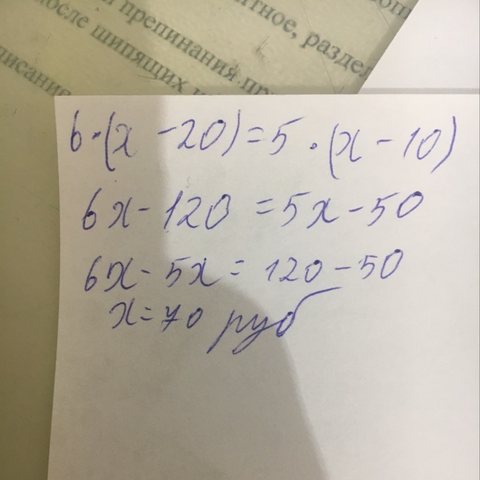 нтное, раздел
и препинания пр
после шипящих
писание
6·(x – 20) = 5·(x – 10)
6x – 120 = 5x – 50
6x – 5x = 120 – 50
x = 70 руб